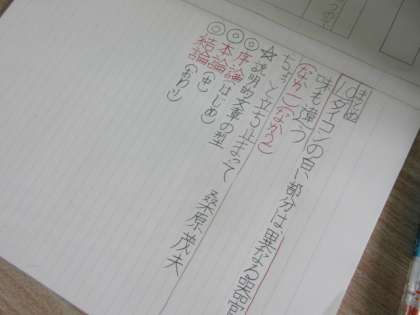 ダイコンの白い部分は異なる器官
味も違う
(なか1)(なか2)
ちょっと立ち止まって 桑原茂夫
☆説明的文章の型
◎序論(はじめ)
◎本論(中)
◎結論(おわり)